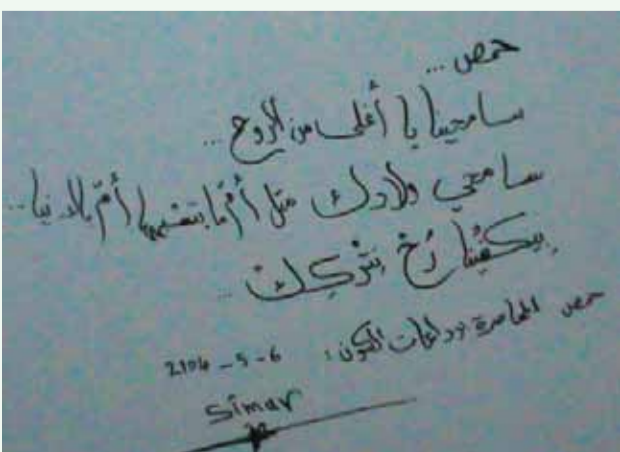 حمص ...
سامحينا يا أغلى من الروح ...
سامحي ولادك متل أم ما بتشبهها أم بالدنيا ..
بيكفينا رح نتركك ..
حمص المحاصرة :
2104 - 5 - 6
Simar